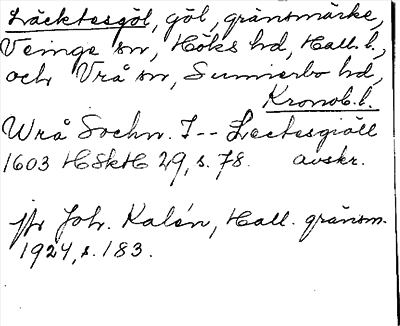 Läcktesgöl, göl, gränsmärke,
Veinge sn, Höks hd, Hall. l.,
och Vrå sn, Sunnerbo hd,
Kronob. l.
Wrå Sochn. I-- Lectesgiöll
1603 HSkH 29, s. 78. avskr.
jfr Joh. Kalén, Hall. gränsm.
1924, s. 183.